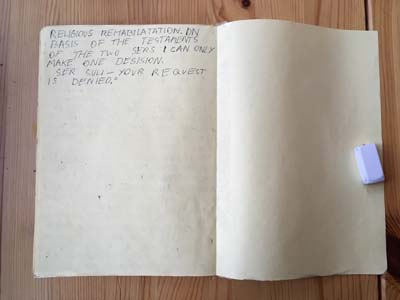 RELIGIOUS REHABILATATION. ON
BASIS OF THE TESTAMENTS
OF THE TWO SERS I CAN ONLY
MAKE ONE DESISION.
SER SULI – YOUR REQUEST
IS DENIED."